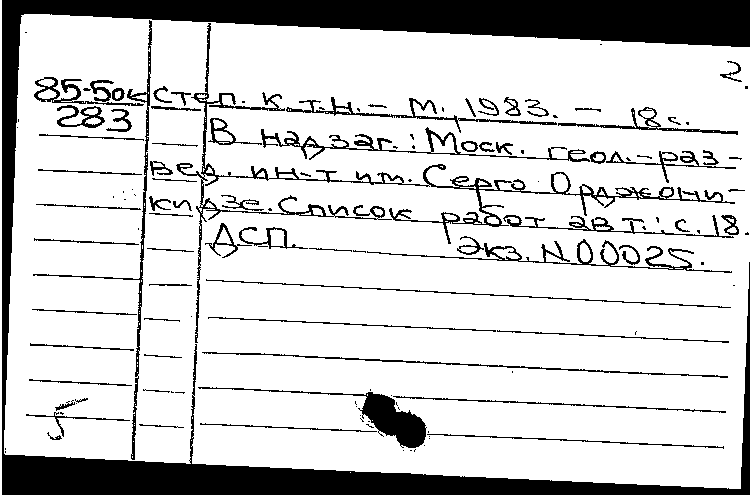 2.
85-5ок степ. к.т.н. - М., 1983. - 18с.
283 В надзаг.: Моск. геол.-раз-
вед. ин-т им. Серго Орджони-
кидзе. Список работ авт.: с. 18.
ДСП. Экз. N 00025.
5